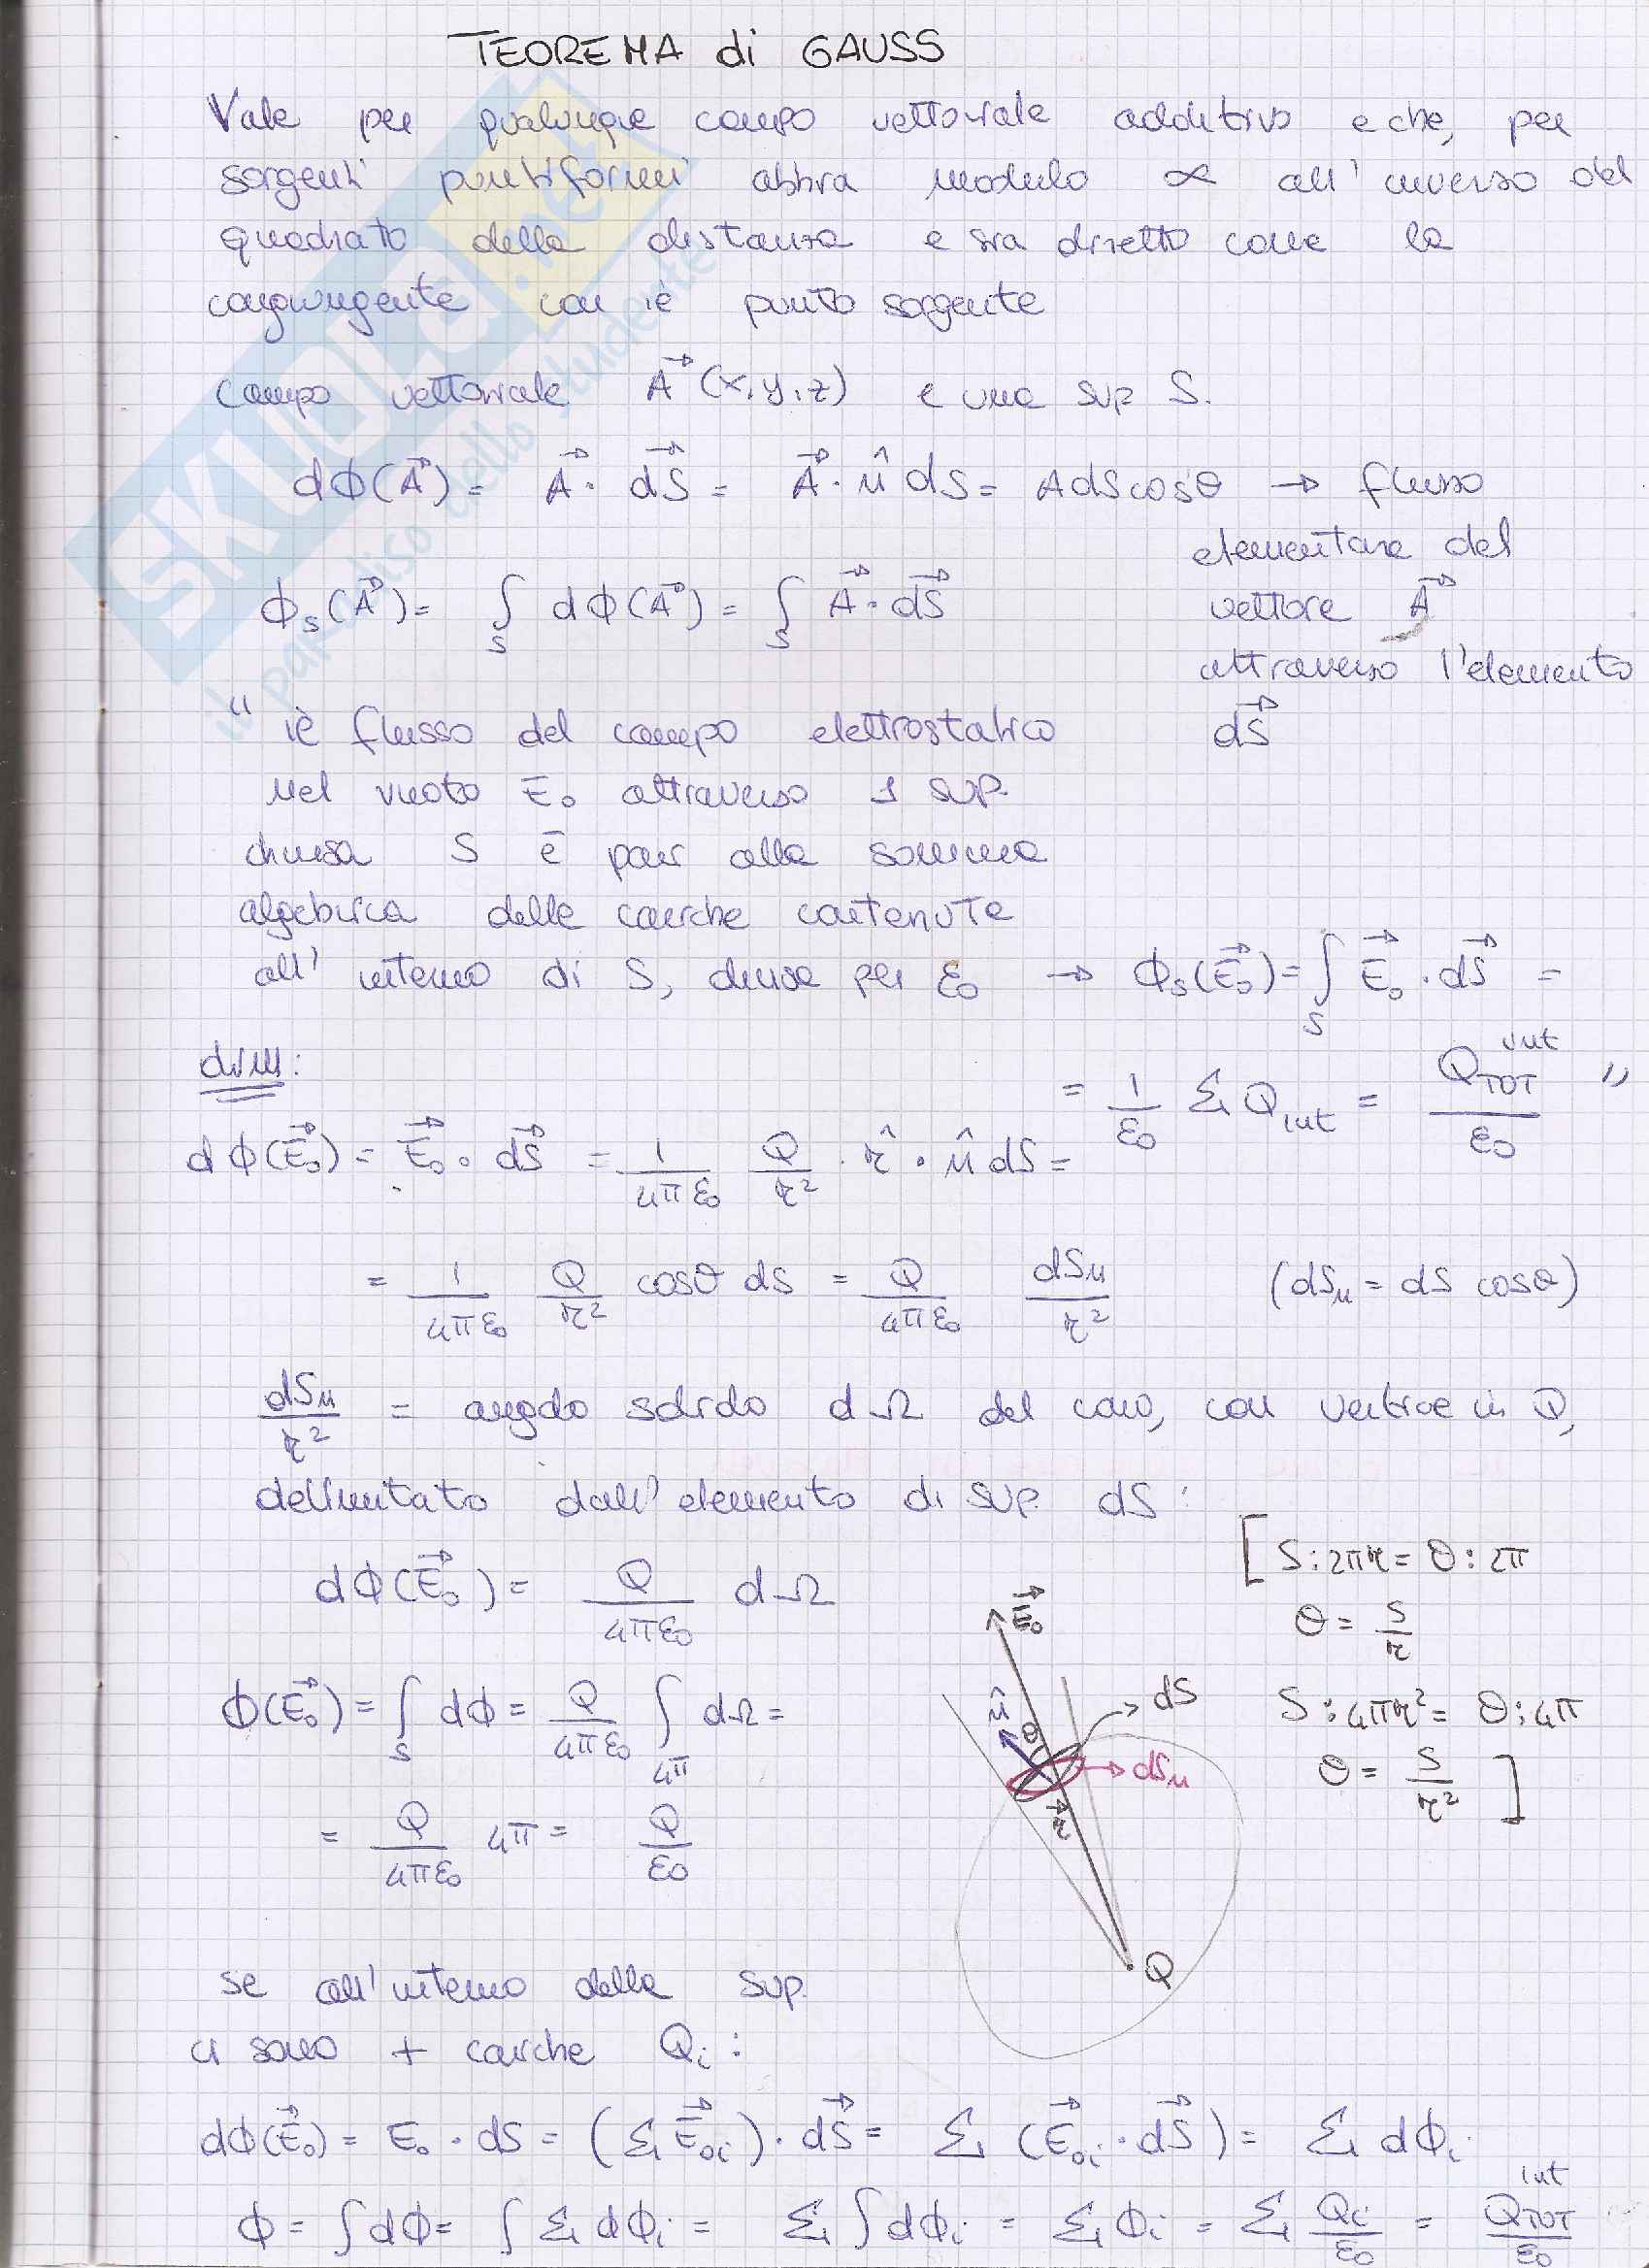 TEOREMA di GAUSS
Vale per qualunque campo vettoriale additivo e che, per
sorgenti puntiformi abbia modulo ∝ all'inverso del
quadrato della distanza e sia diretto come la
congiungente con il punto sorgente
Campo vettoriale A⃗ (x,y,z) e una sup S.
dϕ(A⃗) = A⃗ · dS⃗ = A⃗ · n̂ dS = A dS cosθ → flusso
elementare del
ϕₛ(A⃗) = ∫ₛ dϕ(A⃗) = ∫ₛ A⃗ · dS⃗
vettore A⃗
attraverso l'elemento
dS⃗
" il flusso del campo elettrostatico
nel vuoto E₀ attraverso 1 sup.
chiusa S è pari alla somma
algebrica delle cariche contenute
all'interno di S, divise per ε₀ → ϕₛ(E⃗₀) = ∫ₛ E⃗₀ · dS⃗ =
= 1/ε₀ Σ Q_int = Q_TOT^int/ε₀ "
dim:
dϕ(E⃗₀) = E⃗₀ · dS⃗ = 1/4πε₀ Q/r² · r̂ · n̂ dS =
= 1/4πε₀ Q/r² cosθ dS = Q/4πε₀ dSₙ/r² (dSₙ = dS cosθ)
dSₙ/r² = angolo solido dΩ del cono, con vertice in Q,
delimitato dall'elemento di sup. dS:
[ S:2πr = θ:2π
dϕ(E⃗₀) = Q/4πε₀ dΩ
θ = S/r
ϕ(E⃗₀) = ∫ₛ dϕ = Q/4πε₀ ∫_4π dΩ =
S:4πr² = θ:4π
θ = S/r² ]
= Q/4πε₀ 4π = Q/ε₀
E⃗₀
n̂
θ
dS
dSₙ
r⃗
Q
se all'interno della sup.
ci sono + cariche Qᵢ:
dϕ(E⃗₀) = E₀ · dS = (Σ E⃗₀ᵢ) · dS⃗ = Σ (E⃗₀ᵢ · dS⃗) = Σ dϕᵢ
ϕ = ∫dϕ = ∫ Σ dϕᵢ = Σ ∫dϕᵢ = Σ ϕᵢ = Σ Qᵢ/ε₀ = Q_TOT^int/ε₀
SKUOLA.net
il paradiso dello studente